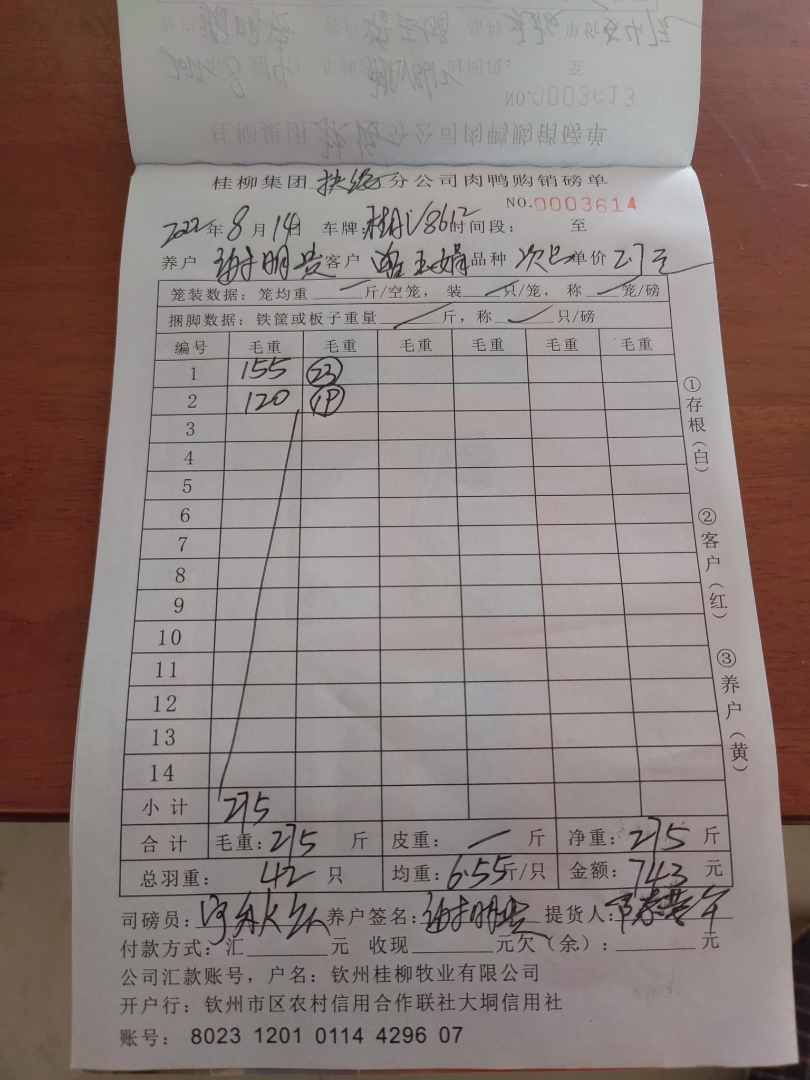 桂柳集团扶绥分公司肉鸭购销磅单
NO.0003613
桂柳集团扶绥分公司肉鸭购销磅单
NO.0003614
2022年8月14日 车牌:桂AV8612时间段: 至
养户 谢明贵客户 玉娟品种 次品单价2.7元
笼装数据:笼均重 斤/空笼, 装 只/笼, 称 笼/磅
捆脚数据:铁筐或板子重量 斤,称 只/磅
编号 毛重 毛重 毛重 毛重 毛重 毛重
1 155 23
2 120 19
3
4
5
6
7
8
9
10
11
12
13
14
小计 275
合计 毛重:275 斤 皮重: 斤 净重:275 斤
总羽重: 42 只 均重:6.55斤/只 金额:743 元
司磅员: 养户签名:谢明贵 提货人:
付款方式:汇 元 收现 元欠(余): 元
公司汇款账号,户名:钦州桂柳牧业有限公司
开户行:钦州市区农村信用合作联社大垌信用社
账号: 8023 1201 0114 4296 07
①存根(白)
②客户(红)
③养户(黄)